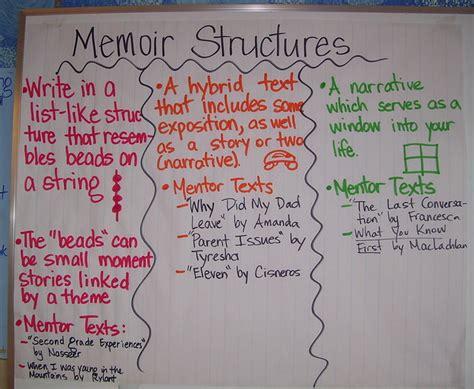 Memoir Structures
•Write in a
list-like struc
ture that resem-
bles beads on
a string
•The "beads" can
be small moment
stories linked
by a theme
•Mentor Texts:
-"Second Grade Experiences"
by Nasseer
-When I was young in the
Mountains by Rylant
•A hybrid text
that includes some
exposition, as well
as a story or two
(narrative).
•Mentor Texts
-"Why Did My Dad
Leave" by Amanda
-"Parent Issues" by
Tyresha
-"Eleven" by Cisneros
•A narrative
which serves as a
window into your
life.
•Mentor Texts
-"The Last Conversa-
tion" by Francesca
-What You Know
First by MacLachlan